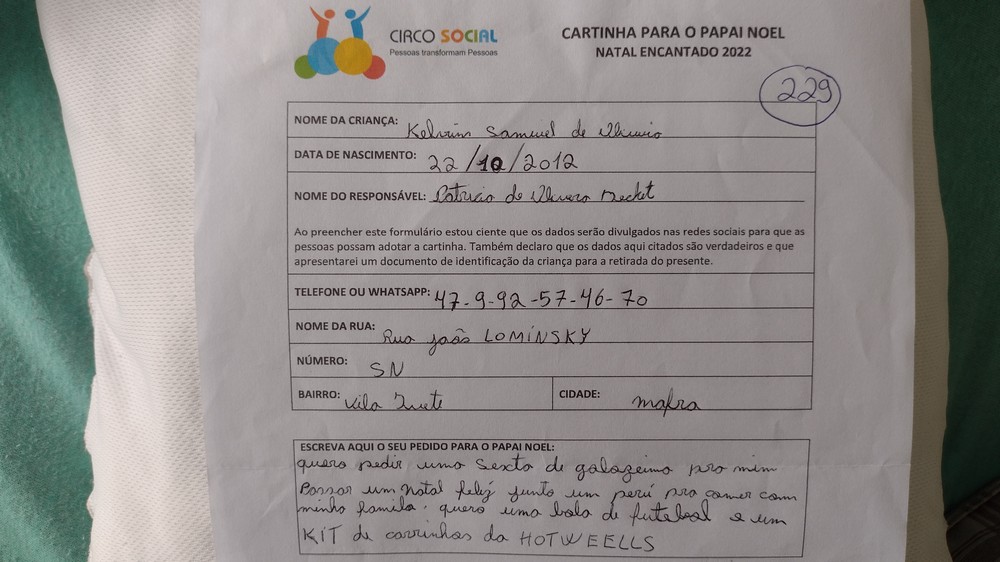 CIRCO SOCIAL
Pessoas transformam Pessoas
CARTINHA PARA O PAPAI NOEL
NATAL ENCANTADO 2022
229
NOME DA CRIANÇA: Samuel de
DATA DE NASCIMENTO: 22/10/2012
NOME DO RESPONSÁVEL: de
Ao preencher este formulário estou ciente que os dados serão divulgados nas redes sociais para que as
pessoas possam adotar a cartinha. Também declaro que os dados aqui citados são verdadeiros e que
apresentarei um documento de identificação da criança para a retirada do presente.
TELEFONE OU WHATSAPP: 47-9-92-57-46-70
NOME DA RUA: Rua joão LOMÍNSKY
NÚMERO: SN
BAIRRO: Vila CIDADE: mafra
ESCREVA AQUI O SEU PEDIDO PARA O PAPAI NOEL:
quero pedir uma sexta de pro mim
Passar um natal felij junto um perú pra comer com
minha familia. quero uma bola de futebool e um
KIT de carrinhos da HOTWEELLS